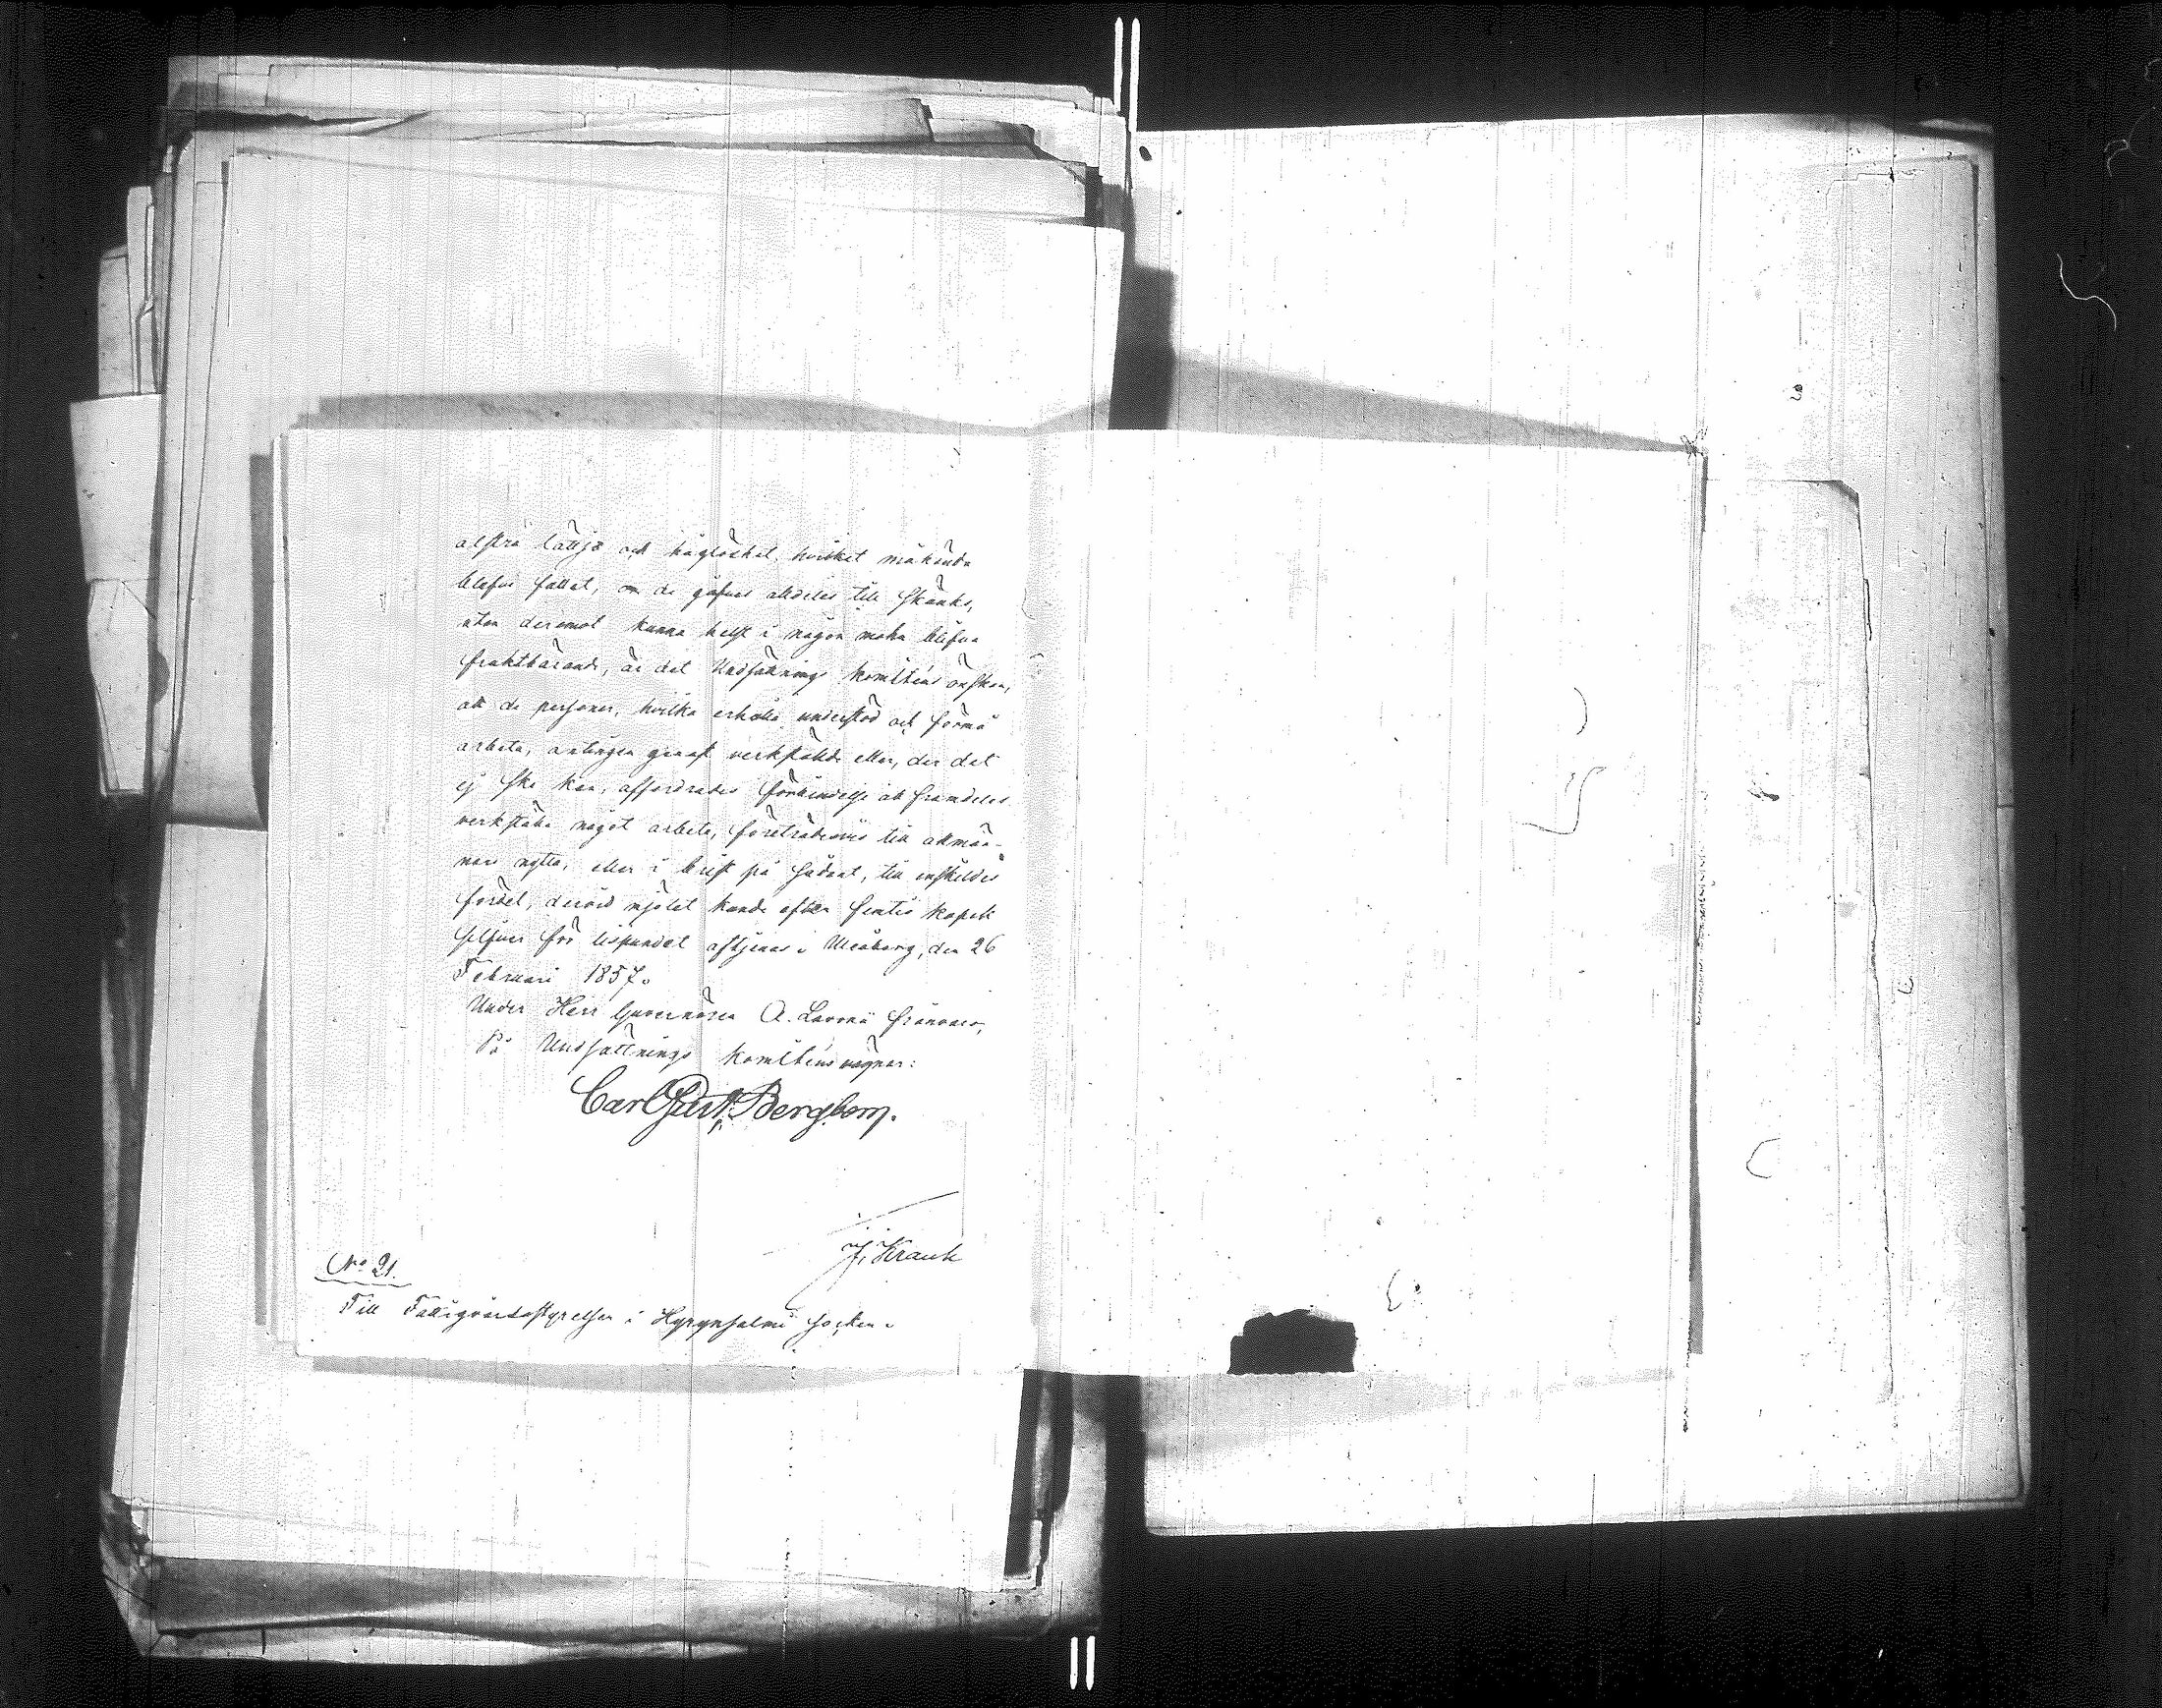 alstra lättja och håglöshet, hvilket måhända
blefve fallet, om de gåfves alldeles till skänks,
utan deremot kunna helst i någon måtto blifva
fruktbärande, är det Undsättnings komiténs önskan,
att de personer, hvilka erhålla understöd och förmå
arbeta, antingen genast verkställde eller, der det
ej ske kan, affordrades förbindelse att framdeles
verkställa något arbete, företrädesvis till allmän-
nare nytta, eller i brist på sådant, till enskildes
fördel, dervid mjölet kunde efter femtio kopek
silfver för lispundet aftjenas. Uleåborg, den 26
Februari 1857.
Under Herr Guvernören A. Lavonii frånvaro,
På Undsättnings komiténs vägnar:
Carl Gust. Bergbom.
J. Krank
No 21.
Till Fattigvårdsstyrelsen i Hyrynsalmi Socken.